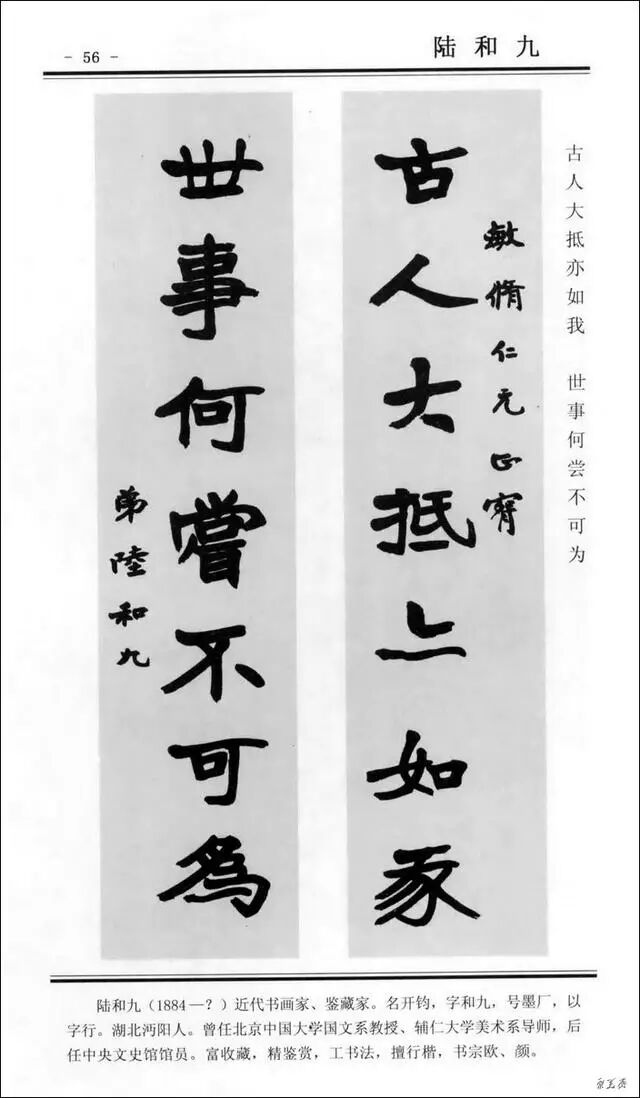 - 56 -
陆和九
古人大抵亦如我 世事何尝不可为
敏脩仁兄正
古人大抵亦如我
世事何嘗不可為
弟陸和九
陆和九（1884—？）近代书画家、鉴藏家。名开钧，字和九，号墨厂，以
字行。湖北沔阳人。曾任北京中国大学国文系教授、辅仁大学美术系导师，后
任中央文史馆馆员。富收藏，精鉴赏，工书法，擅行楷，书宗欧、颜。